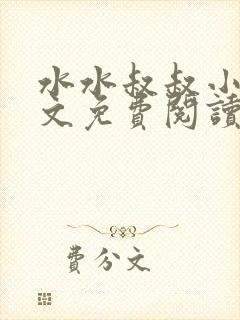 水水叔叔小
文免費閱讀
費分文